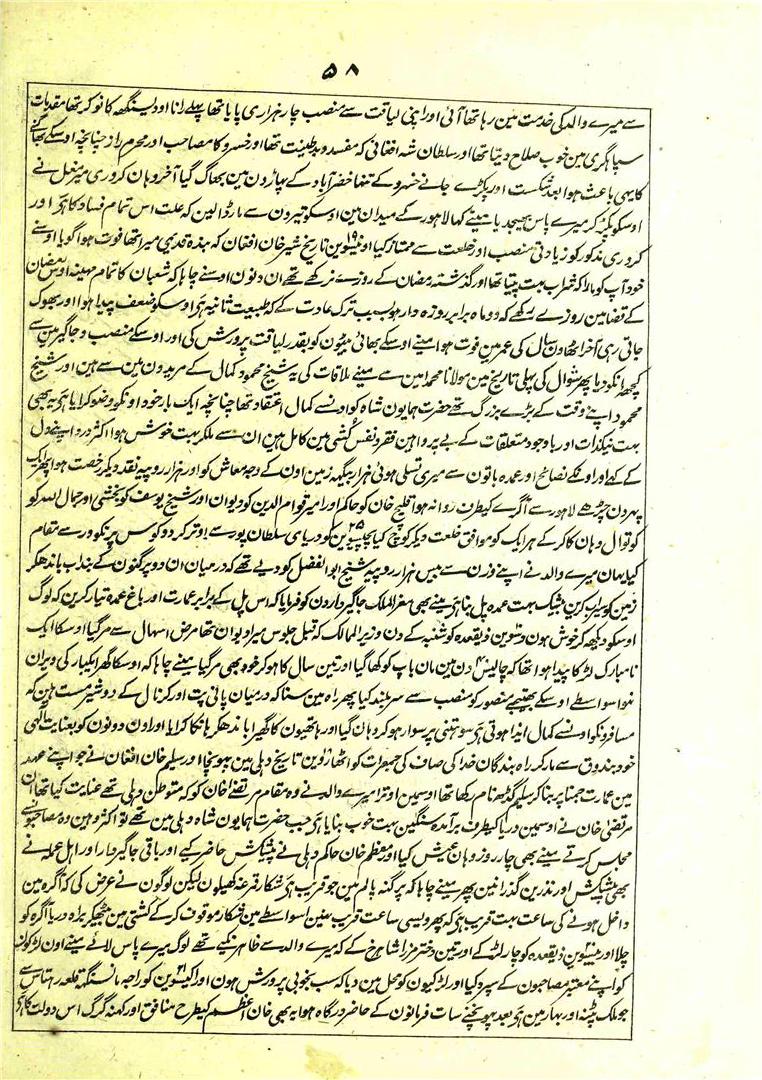 ۵۸
سے میرے والد کی خدمت مین رہا تھا آئی اور اپنی لیاقت سے منصب چار ہزاری پایا تھا پہلے رانا اودیسنگھ کا نوکر تھا مقدمات
سپاہگری مین خوب صلاح دیتا تھا اور سلطان شہ افغانی کہ مفسد و بدطینت تھا اور خسرو کا مصاحب اور محرم راز چنانچہ اوسکے بھاگنے
کا یہی باعث ہوا بعد شکست اور پکڑے جانے خسرو کے تنہا خضرآباد کے پہاڑون مین بھاگ گیا آخر وہان کروری میر مغل نے
اوسکو پکڑ کر میرے پاس بھیجدیا مینے کہا لاہور کے میدان مین اوسکو تیرون سے مار ڈالین کہ علت اس تمام فساد کا ہی اور
کروری مذکور کو زیادتی منصب اور خلعت سے ممتاز کیا اونیسوین تاریخ شیر خان افغان کہ بندہ قدیمی میرا تھا فوت ہوا گویا اوسنے
خود آپ کو مارا کہ شراب بہت پیتا تھا اور گذشتہ رمضان کے روزے نرکھے تھے ان دنون اوسنے چاہا کہ شعبان کا تمام مہینہ اوس رمضان
کے قضا مین روزے رکھے کہ دو ماہ برابر روزہ دار ہو بسبب ترک عادت کے کہ طبیعت ثانیہ ہی اوسکو ضعف پیدا ہوا اور بھوک
جاتی رہی آخر اٹھاون سال کی عمر مین فوت ہوا مینے اوسکے بھائی بیٹون کو بقدر لیاقت پرورش کی اور اوسکے منصب و جاگیر مین سے
کچھ انکو دیا پھر شوال کی پہلی تاریخ مین مولانا محمد امین سے مینے ملاقات کی یہ شیخ محمود کمال کے مریدون مین سے ہین اور شیخ
محمود اپنے وقت کے بڑے بزرگ تھے حضرت ہمایون شاہ کو اونسے کمال اعتقاد تھا چنانچہ ایک بار خود اونکو وضو کرایا ہی یہ بھی
بہت نیکذات اور باوجود متعلقات کے بے پروا ہین فقر و نفس کشی مین کامل ہین ان سے ملکر بہت خوش ہوا اکثر درد اپنے دل
کے کہے اور اونکے نصائح اور عمدہ باتون سے میری تسلی ہوئی ہزار بیگہہ زمین اون کے وجہ معاش کو اور ہزار روپیہ نقد دیکر رخصت ہوا پھر ایک
پہر دن چڑھے لاہور سے آگرے کیطرف روانہ ہوا قلیج خان کو حاکم اور امیر قوام الدین کو دیوان اور شیخ یوسف کو بخشی اور جمال اللہ کو
کوتوال وہان کا کر کے ہر ایک کو موافق خلعت دیکر کوچ کیا پچیسوین کو دریای سلطان پور سے اوتر کر دو کوس پر نکودر سے مقام
کیا یہان میرے والد نے اپنے وزن سے بیس ہزار روپیہ شیخ ابوالفضل کو دیے تھے کہ درمیان ان دو پرگنون کے بنداب باندھکر
زمین کو سیراب کرین بیشک بہت عمدہ پل بنا ہی مینے بھی معز الملک جاگیردارون کو فرمایا کہ اس پل کے برابر عمارت اور باغ عمدہ تیار کرین کہ لوگ
اوسکو دیکھ کر خوش ہون دسوین ذیقعدہ کو شنبہ کے دن وزیر الممالک کہ قبل جلوس میرا دیوان تھا مرض اسہال سے مر گیا اوسکا ایک
نامبارک لڑکا پیدا ہوا تھا کہ چالیس دن مین مان باپ کو کھا گیا اور تین سال کا ہوکر خود بھی مر گیا مینے چاہا کہ اوسکا گھر یکبار کی ویران
نہوا سواسطے اوسکے بھتیجے منصور کو منصب سے سربلند کیا پھر راہ مین سنا کہ درمیان پانی پت اور کرنال کے دو شیر مست ہین کہ
مسافرونکو اونسے کمال ایذا ہوتی ہی سو ہتنی پر سوار ہوکر وہان گیا اور ہاتھیون کا گھیرا باندھکر ہانکا کرایا اور اون دونون کو بعنایت الٰہی
خود بندوق سے مارکر راہ بندگان خدا کی صاف کی جمعرات کو اٹھارہوین تاریخ دہلی مین پہونچا اور سلیم خان افغان نے جو اپنے عہد
مین عمارت جمنا پر بناکر سلیم گڈھ نام رکھا تھا اوسمین اوترا میرے والد نے وہ مقام مرتضے خان کو کہ متوطن دہلی تھے عنایت کیا تھا ان
مرتضی خان نے اوسمین دریا کیطرف برآمدہ سنگین بہت خوب بنایا ہی جب حضرت ہمایون شاہ دہلی مین تھے تو اکثر وہین وہ مصاحبونسے
مجلس کرتے مینے بھی چار روز وہان عیش کیا اور معظم خان حاکم دہلی نے پیشکش حاضر کیے اور باقی جاگیردار اور اہل عملہ نے
بھی پیشکش اور نذرین گذرانین پھر مینے چاہا کہ پرگنہ پالم مین جو قریب ہی شکار قرغہ کھیلون لیکن لوگون نے عرض کی کہ آگرہ مین
داخل ہونے کی ساعت بہت قریب ہی کہ پھر ویسی ساعت قریب نہین اسواسطے مین شکار موقوف کرکے کشتی مین بیٹھکر براہ دریا آگرہ کو
چلا اور بیسوین ذیقعدہ کو چار لڑکے اور تین دختر مرزا شاہرخ کے کہ میرے والد سے ظاہر نکیے تھے لوگ میرے پاس لائے مینے اون لڑکونکو
کو اپنے معتبر مصاحبون کے سپرد کیا اور لڑکیون کو محل مین دیا کہ سب بخوبی پرورش ہون اور اکیسوین کو راجہ مانسنگہ قلعہ رہتاس سے
جو ملک پٹنہ اور بہار مین ہی بعد پہونچنے سات فرمانون کے حاضر درگاہ ہوا یہ بھی خان اعظم کیطرح منافق اور کہنہ گرگ اس دولت کا ہی